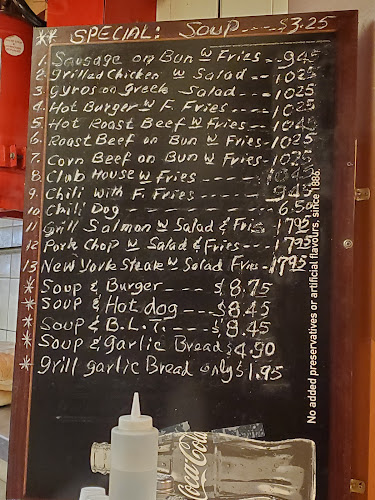 ** SPECIAL: SOUP ---$3.25
1. Sausage on Bun W Fries --945
2. Grilled Chicken W Salad --1025
3 Gyros on Greek Salad --- 1025
4 Hot Burger W F. Fries ---- 1025
5 Hot Roast Beef W Fries --- 1045
6. Roast Beef on Bun W Fries-1025
7. Corn Beef on Bun W Fries-1025
8 Club House W Fries ---- 1045
9. Chili With F. Fries ---- 945
10. Chili Dog --------- 6.50
11 Grill Salmon W Salad & Fries 1795
12 Pork Chop W Salad & Fries--- 1795
13 New York Steak W Salad Fries-1795
* Soup & Burger ---- $8.75
* Soup & Hot dog ---- $8.45
* Soup & B.L.T. ---- $8.45
* Soup & Garlic Bread $4.90
* grill garlic Bread only $1.95
No added preservatives or artificial flavours, since 1886.
Coca-Cola